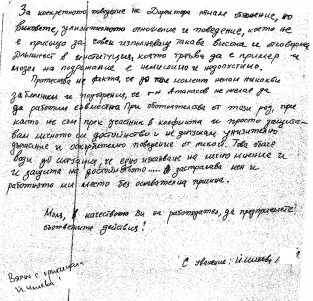 За конкретното поведение на Директора нямам обяснение, но
виковете, унизителното отношение и поведение, което не
е присъщо за човек изпълняващ такава висока и отговорна
длъжност в институция, която трябва да е пример и
модел на подражание е немислимо и недопустимо.
Притеснява ме факта, че до този момент нямам никакви
забележки и подозрения, че г-н Атанасов не желае да
да работим съвместно. При обстоятелства от този род, при
които не съм пряк участник в конфликта и просто защита-
вам мнението си достойнство и не допускам унизително
държание и оскърбително поведение от никого. Това обаче
води до ситуация, че едно изказване на лично мнение и
и защита на достойнството ..... застрашава мен и
работното ми място без основателна причина.
Моля, в качеството Ви на работодател, да предприемете
съответните действия!
С уважение:
Вярно с оригинала